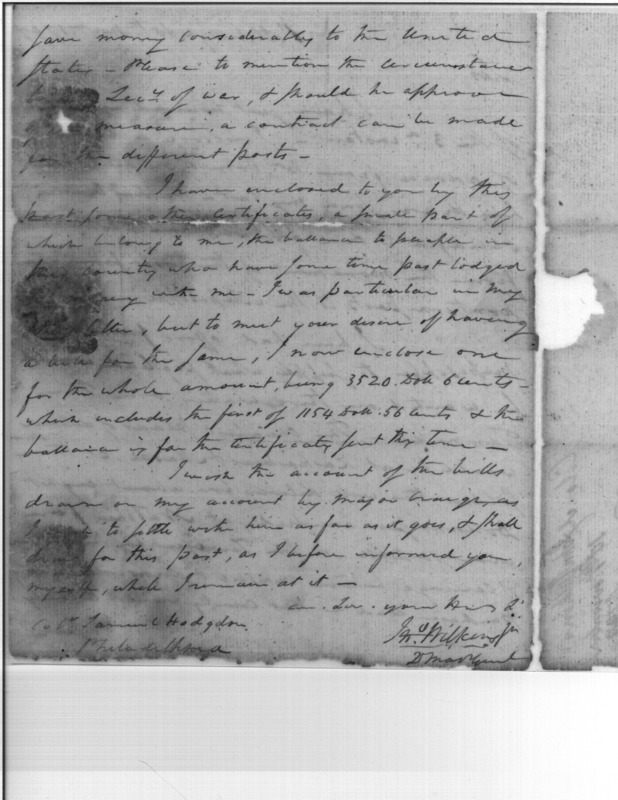 save money considerably to the United
States - Please to mention the circumstance
Secy of war, & should he approve
measure, a contract can be made
for the different posts -
I have enclosed to you by this
post some other Certificates, a small part of
which belong to me, the ballance to people in
country who have some time past lodged
with me - I was particular in my
letter, but to meet your desire of having
a bill for the same, I now enclose one
for the whole amount, being 3520. Doll 6 cents -
which includes the first of 1154 Doll. 56 cents & the
ballance is for the Certificates sent this time -
I wish the account of the bills
drawn on my account by major Craige, as
I to settle with him as far as it goes, & shall
draw for this post, as I before informed you,
myself, while I remain at it -
Sir. your
Samuel Hodgdon
Philadelphia
Jno. Wilkins Jr